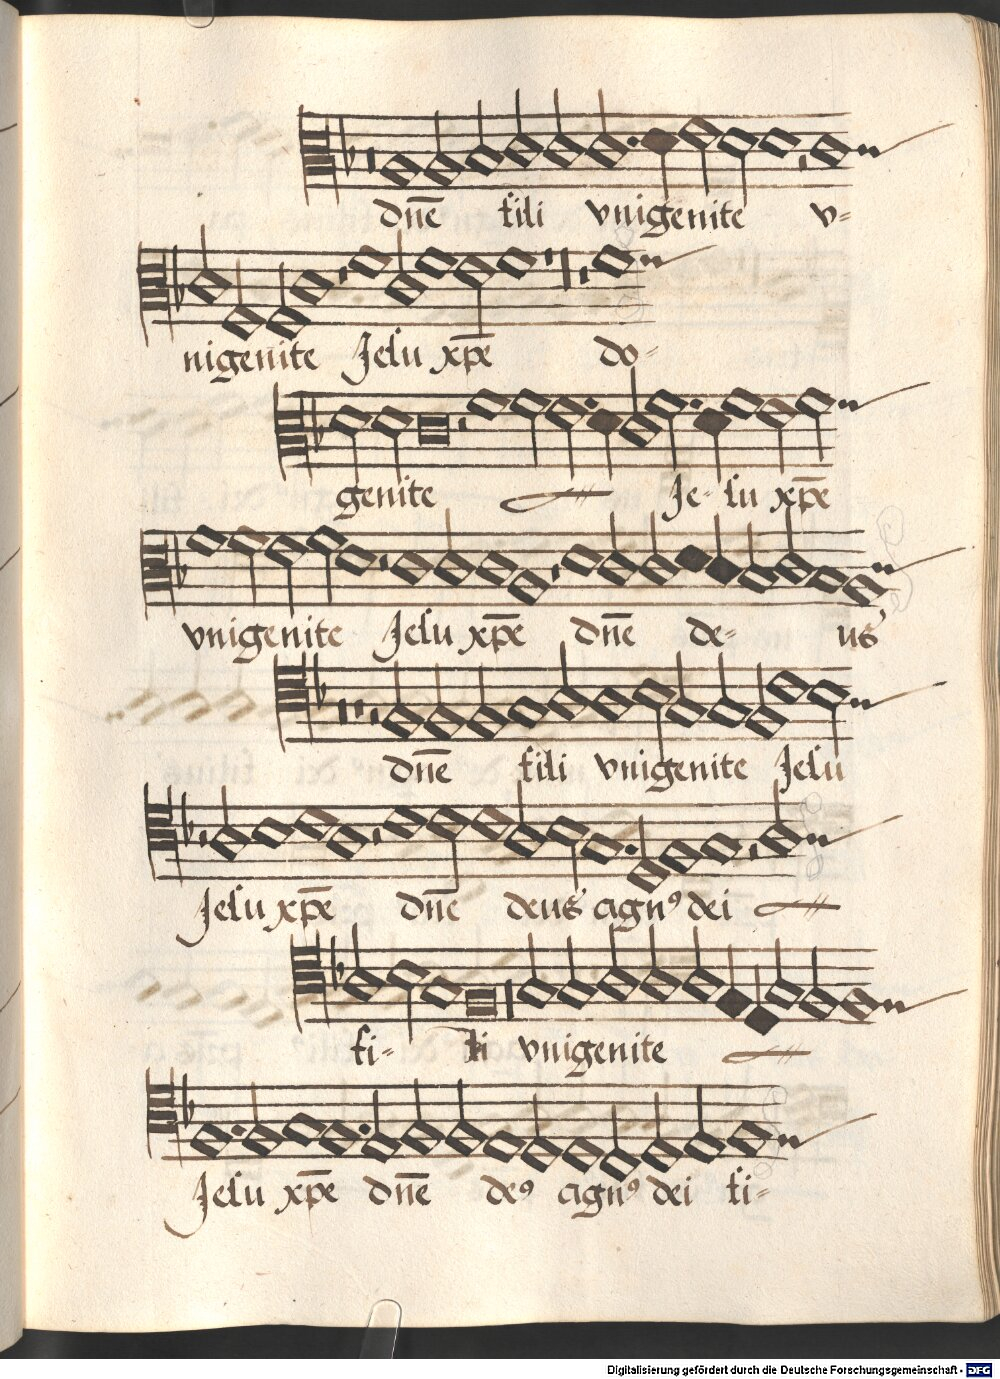 dn̄e fili vnigenite v=
nigenite Jesu xp̄e do=
genite Je- su xp̄e
vnigenite Jesu xp̄e dn̄e de= us
dn̄e fili vnigenite Jesu
Jesu xp̄e dn̄e deus agnꝰ dei
fi= li vnigenite
Jesu xp̄e dn̄e deꝰ agnꝰ dei fi=
Digitalisierung gefördert durch die Deutsche Forschungsgemeinschaft - DFG